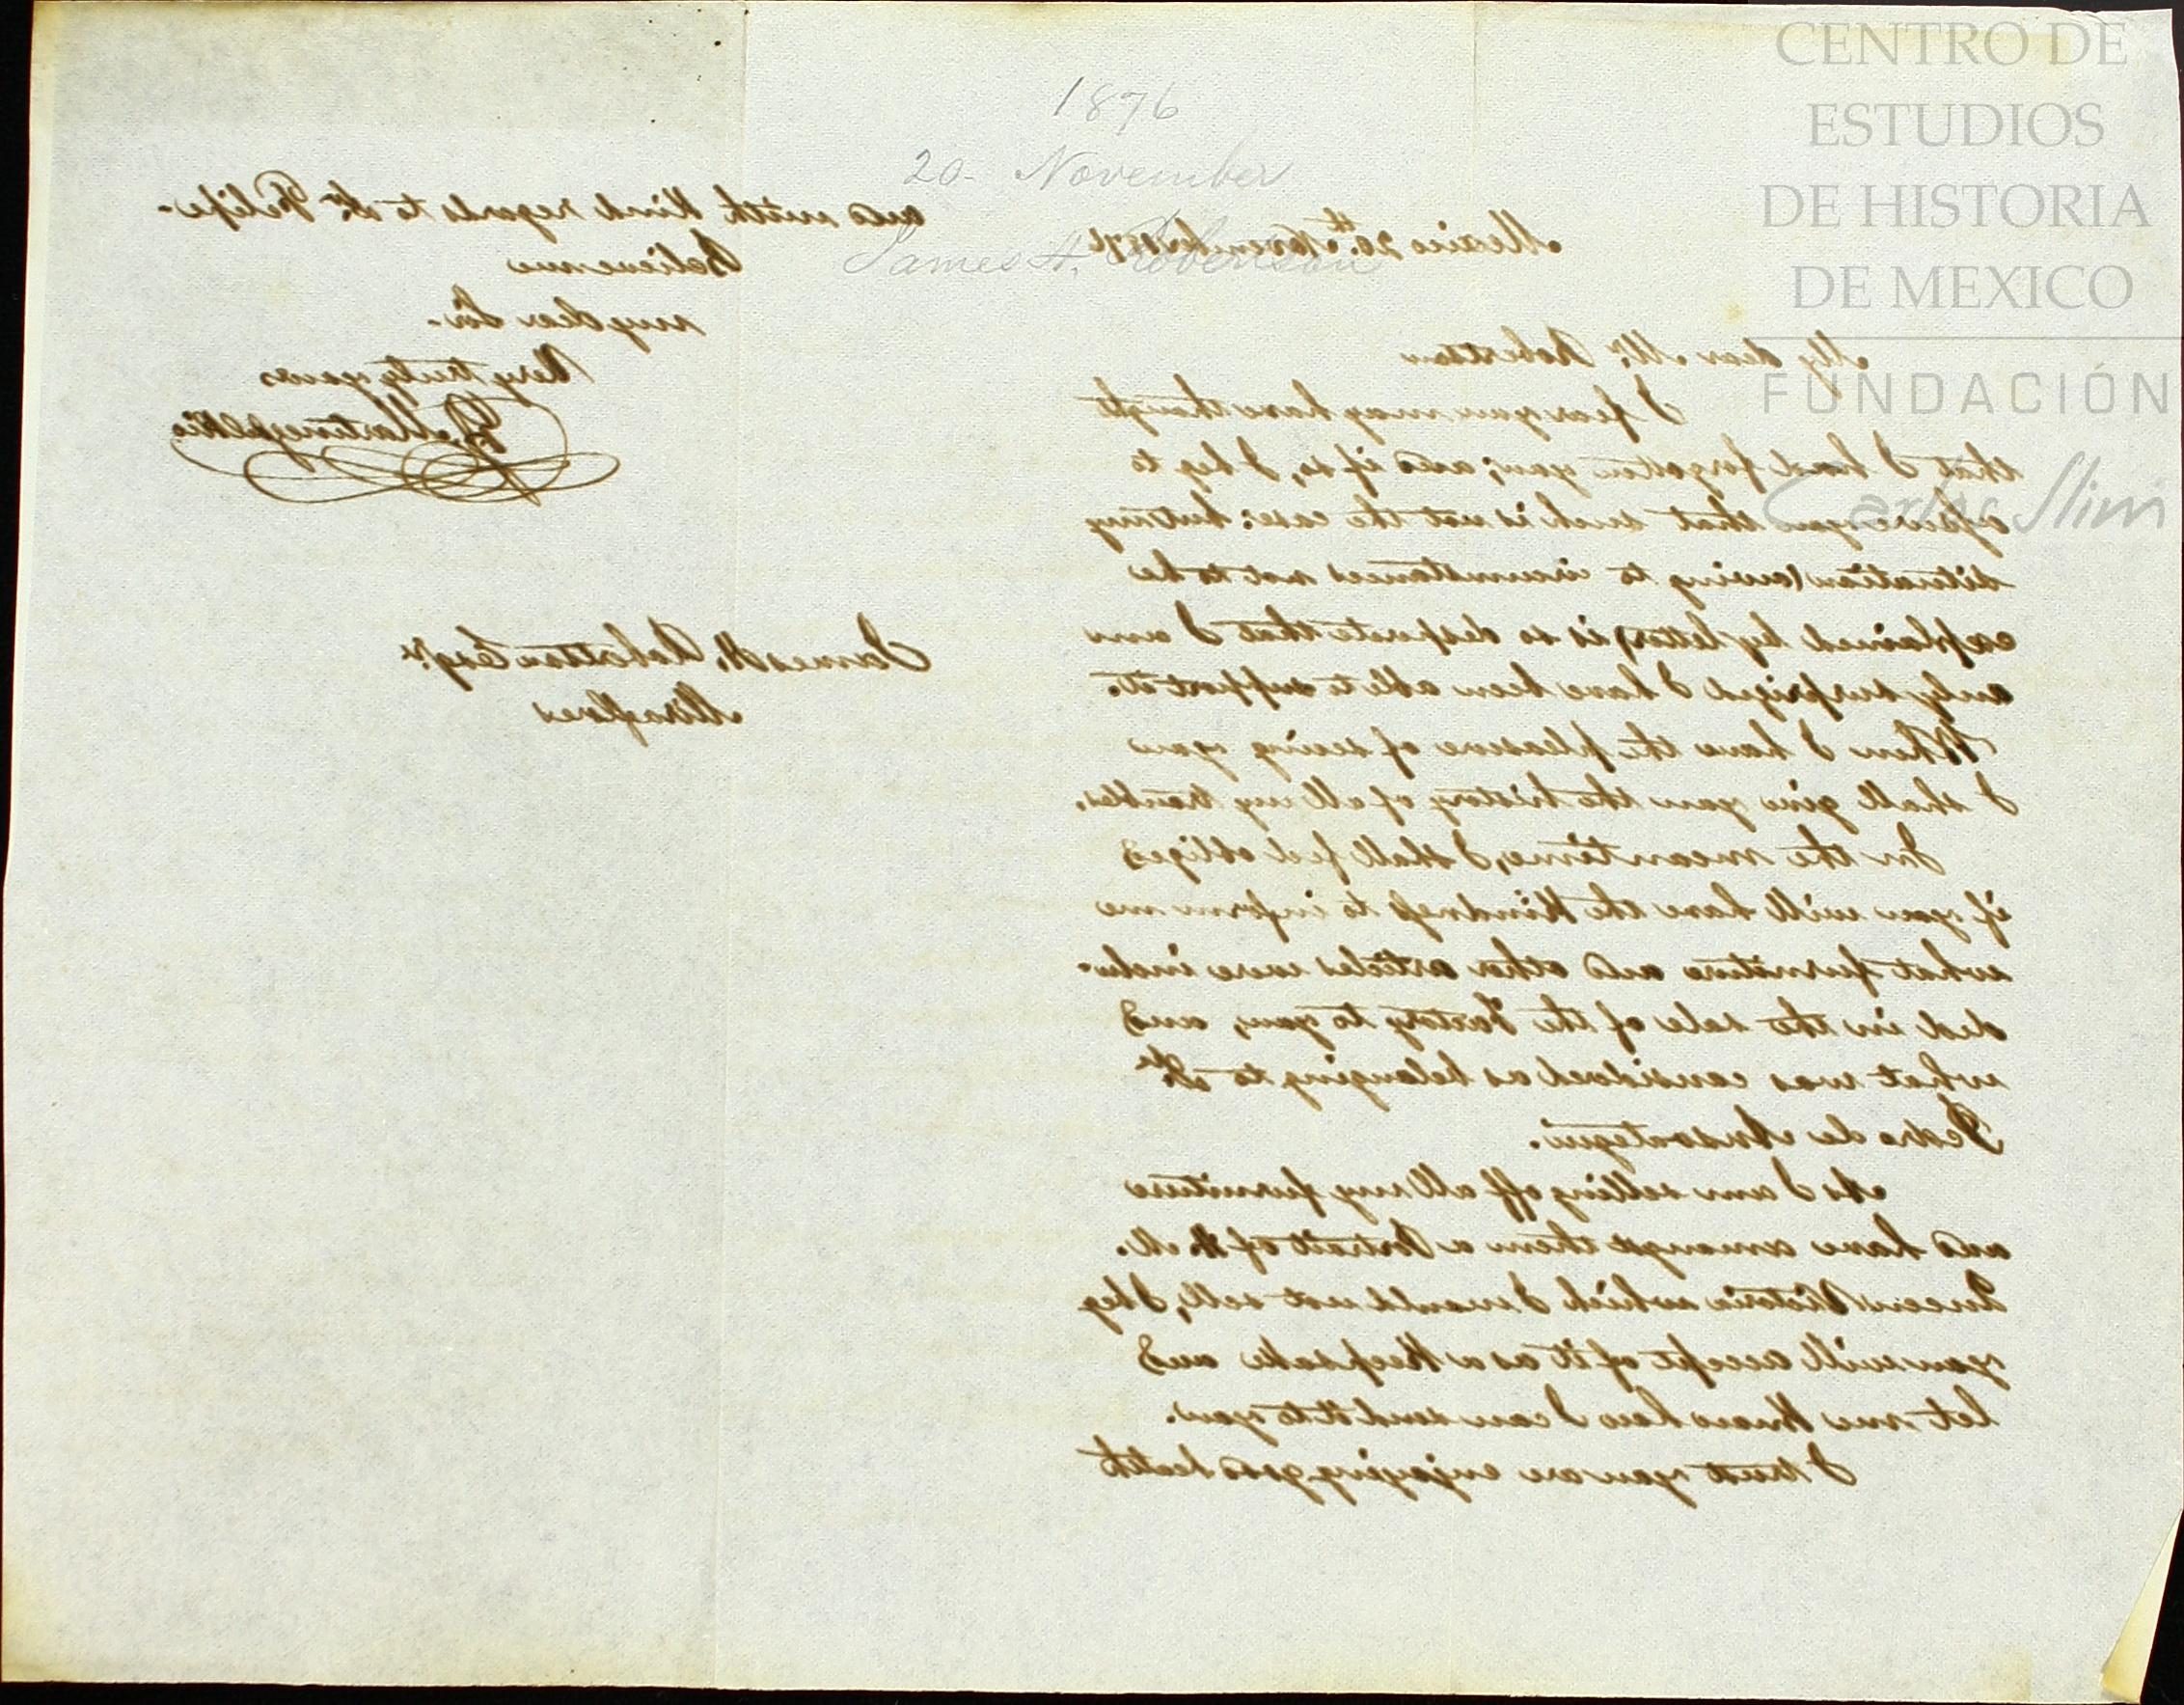 CENTRO DE
ESTUDIOS
DE HISTORIA
DE MEXICO
FUNDACIÓN
Carlos Slim
1876
20- November
James H. Robertson
Mexico 20th November 1876
My dear Mr. Robertson
I fear you may have thought
that I had forgotten you; and if so, I beg to
assure you that such is not the case: but my
situation (owing to circumstances not to be
explained by letter) is so desperate that I am
only surprized I have been able to support it.
When I have the pleasure of seeing you
I shall give you the history of all my troubles.
In the meantime, I shall feel obliged
if you will have the kindness to inform me
what furniture and other articles were inclu-
ded in the sale of the Factory to you, and
what was considered as belonging to Dn
Pedro de Ansoategui.
As I am selling off all my furniture
and have amongst them a Portrait of H. M.
Queen Victoria which I would not sell, I beg
you will accept of it as a Keepsake and
let me know how I can send it to you.
I trust you are enjoying good health
and with kind regards to Dn Felipe-
Believe me
my dear Sir-
Very truly yours
P. Martinez del Rio
James H. Robertson Esqre
Miraflores